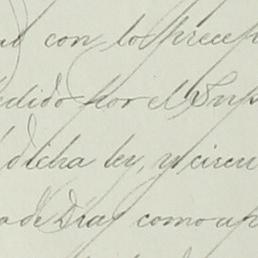 con los precep
edido por el Sup
dicha ley, y circu
a de Diaz como ap